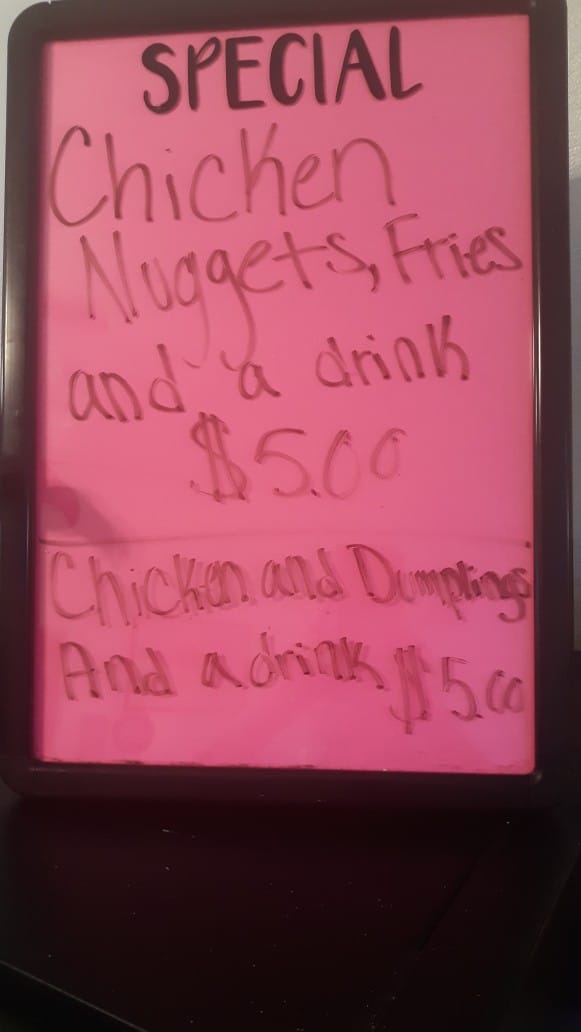 SPECIAL
Chicken
Nuggets, Fries
and a drink
$5.00
Chicken and Dumplings
And a drink $5.00